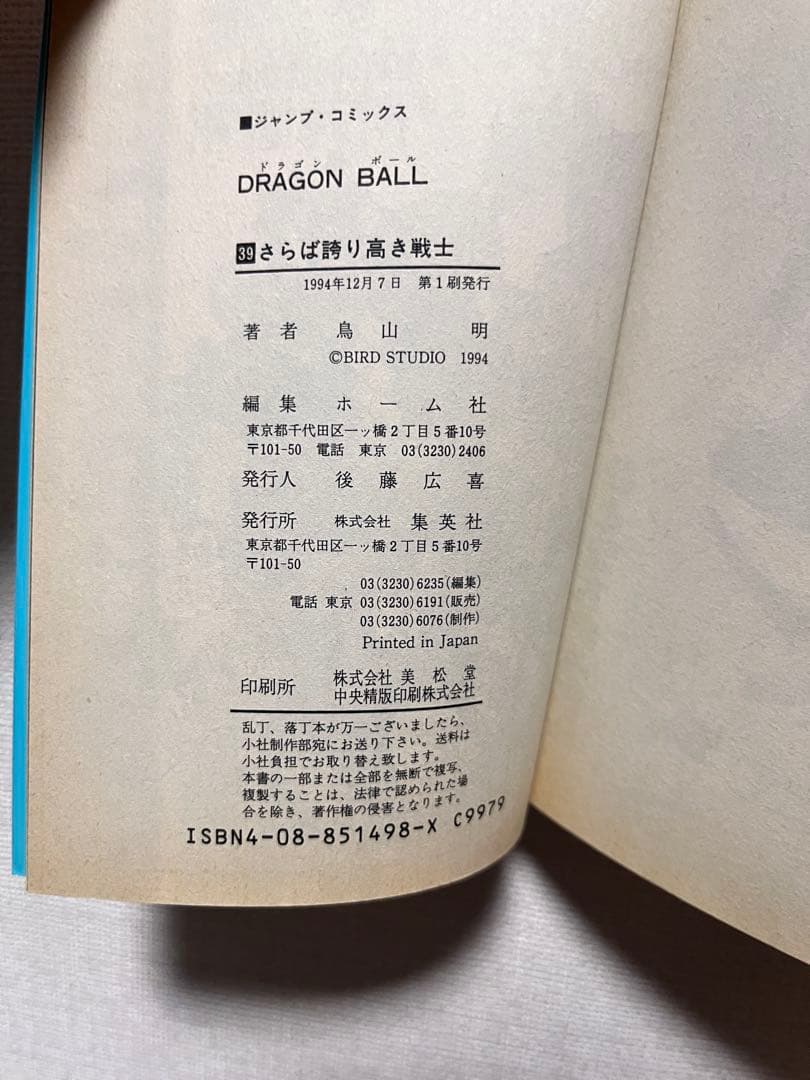 ■ジャンプ・コミックス
ドラゴン ボール
DRAGON BALL
39 さらば誇り高き戦士
1994年12月7日 第1刷発行
著者 鳥山 明
©BIRD STUDIO 1994
編集 ホーム社
東京都千代田区一ッ橋2丁目5番10号
〒101-50 電話 東京 03(3230)2406
発行人 後藤広喜
発行所 株式会社 集英社
東京都千代田区一ッ橋2丁目5番10号
〒101-50
03(3230)6235(編集)
電話 東京 03(3230)6191(販売)
03(3230)6076(制作)
Printed in Japan
印刷所 株式会社 美松堂
中央精版印刷株式会社
乱丁、落丁本が万一ございましたら、
小社制作部宛にお送り下さい。送料は
小社負担でお取り替え致します。
本書の一部または全部を無断で複写、
複製することは、法律で認められた場
合を除き、著作権の侵害となります。
ISBN4-08-851498-X C9979